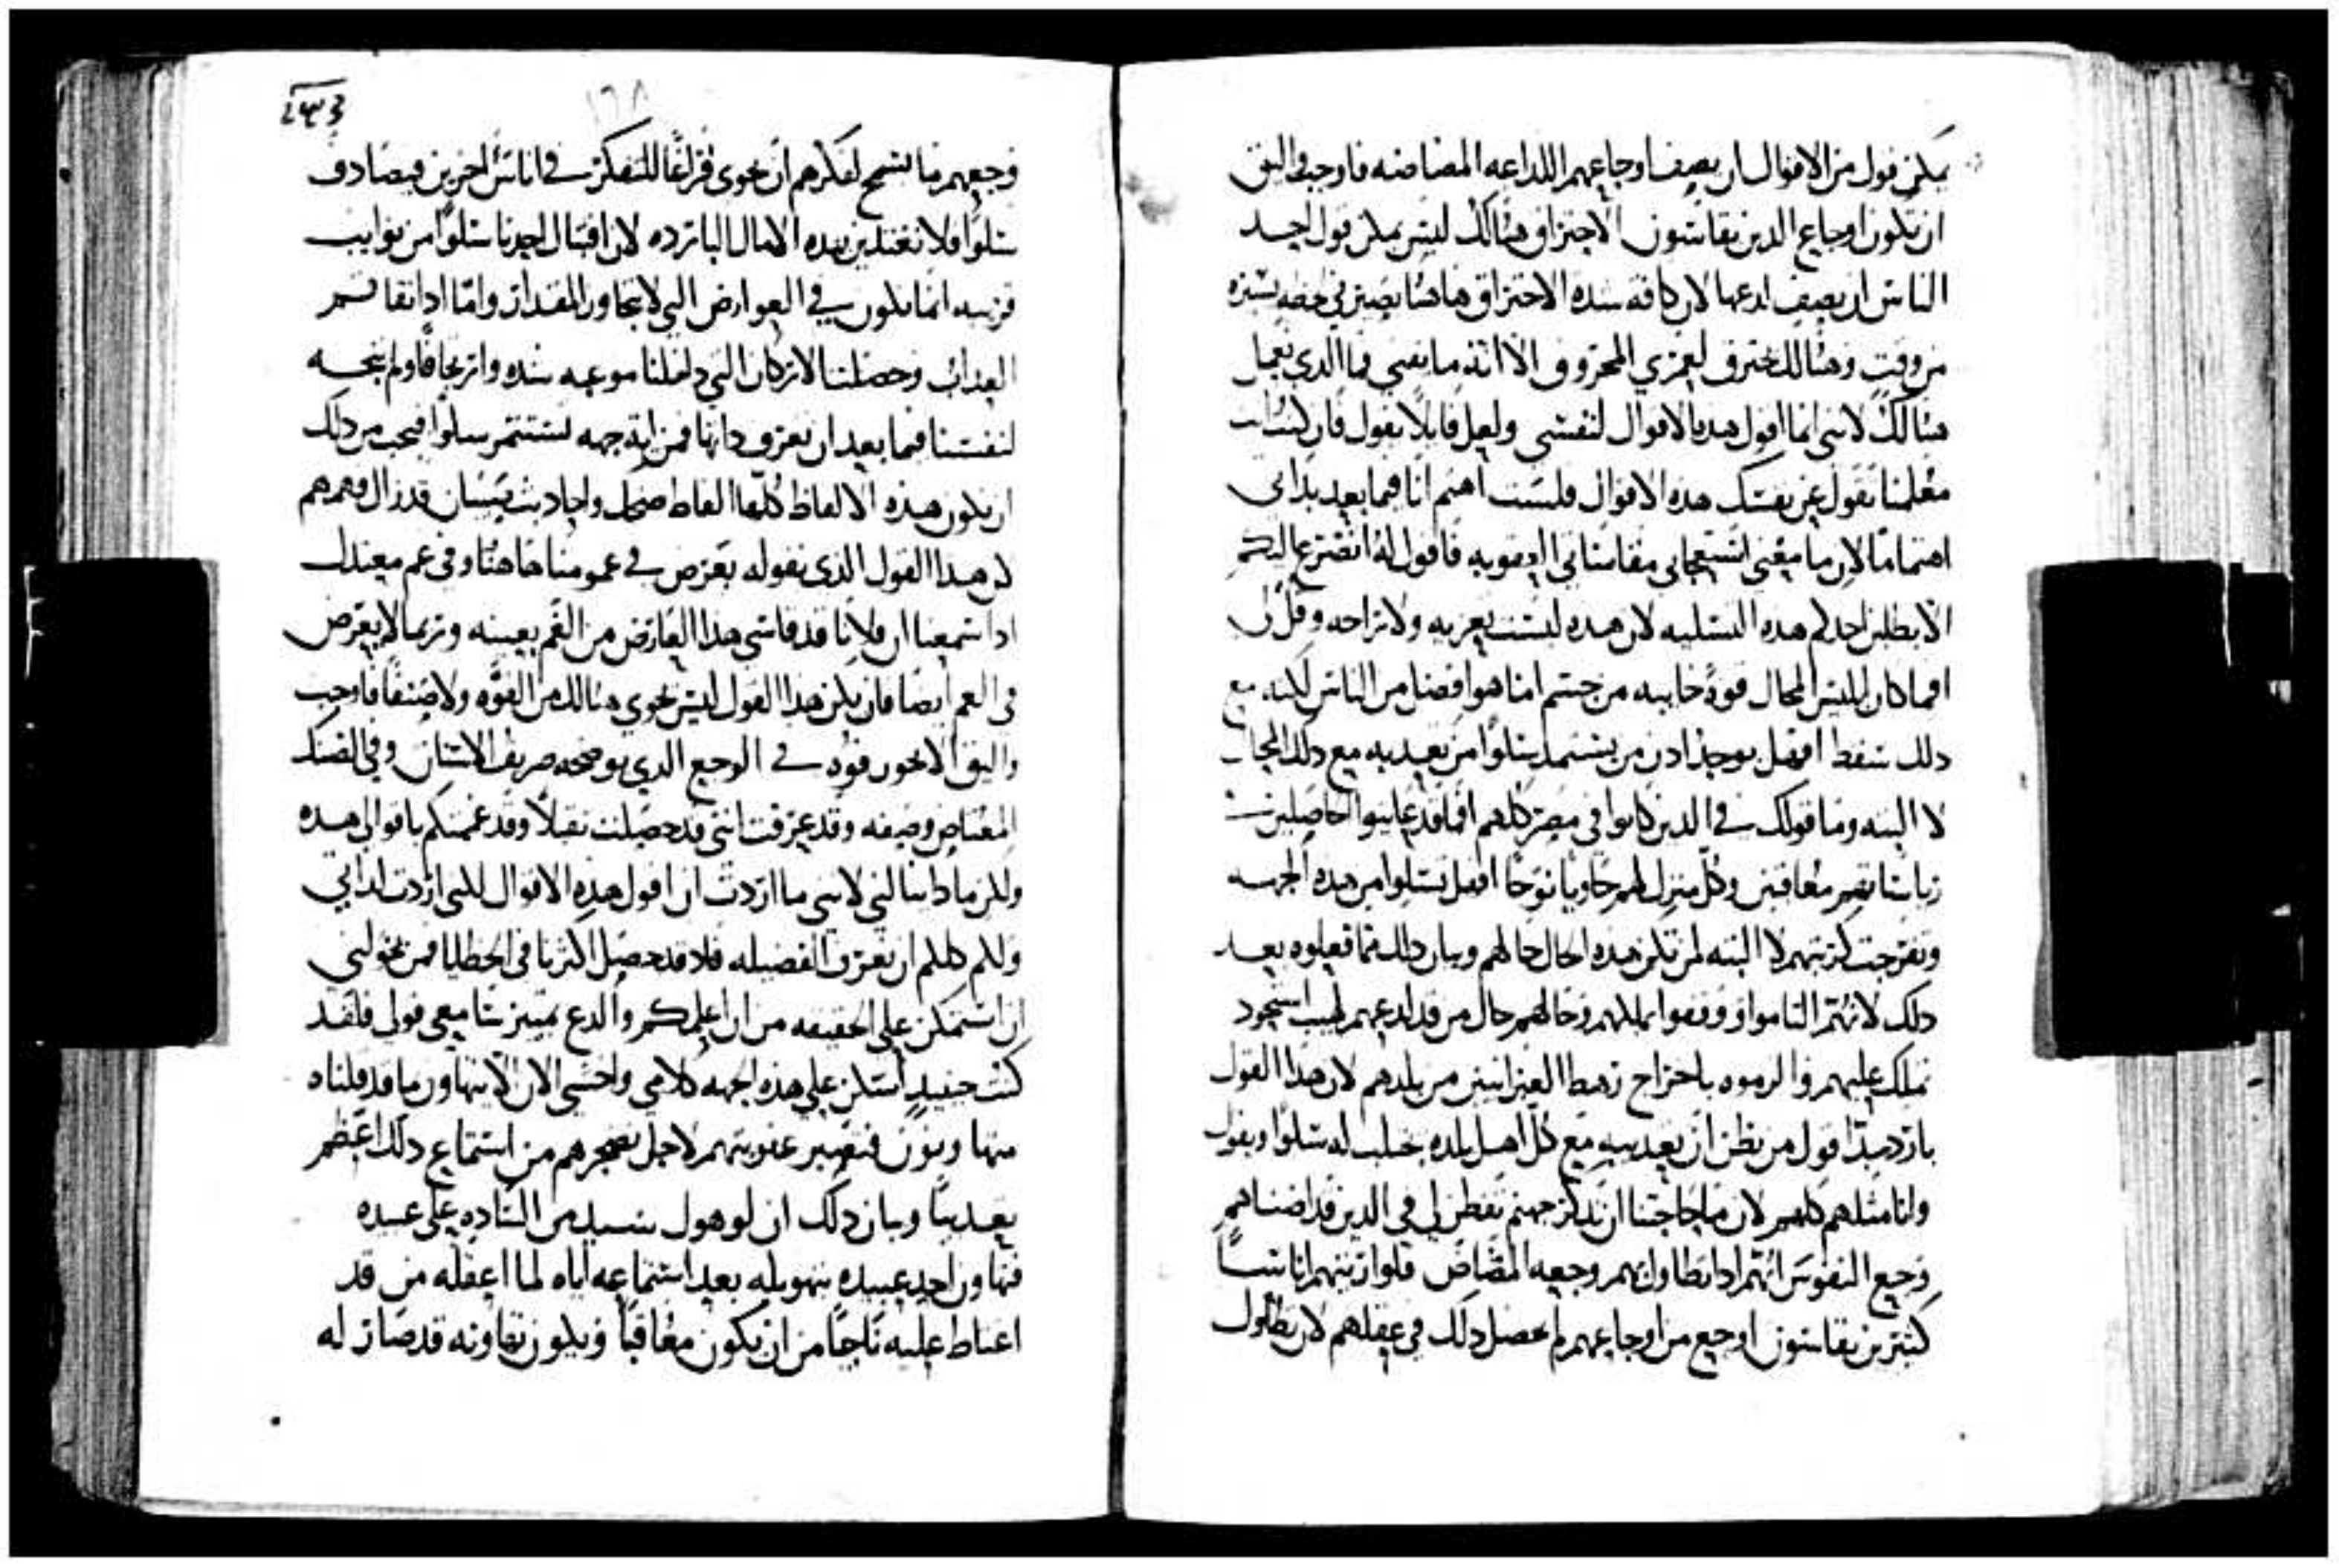 يمكن قول من الاقوال ان يصف اوجاعهم اللداعه المضاضه فاوجب واليق
ان تكون اوجاع الدين يقاسون الاحتراق هنالك ليس يمكن قول احد
الناس ان يصف لدعها لان كافه شده الاحتراق هاهنا يصير في لحظه يسيره
من وقت وهنالك يحترف لعمري المحروق الا انه ما يفني فما الدي نعمل
هنالك لانني انما اقول هده الاقوال لنفسي ولعل قايلا يقول فان كنت يا
معلمنا تقول عن نفسك هده الاقوال فلست اهتم انا فيما بعد بداتي
اهتماما لان ما معني استعجابي مقاساتي العقوبه فاقول له اتضرع اليكم
الا يطلبن احدكم هده التسليه لان هده ليست تعزيه ولا راحه وقل لي
افما كان ابليس المحال قوة خايبه من جسم اما هو افضل من الناس لكنه مع
دلك سقط افهل يوجد ادن من يستمد سلوا من تعديبه مع دلك المحال
لا البته وما قولك في الدين كانوا في مصر كلهم افما قد عاينوا الحاصلين في
رياساتهم معاقبين وكل منزل لهم حاويا نوحا افهل تسلوا من هده الجهه
وتفرجت كربتهم لا البته لم تكن هده الحال حالهم وبيان دلك مما فعلوه بعد
دلك لانهم التاموا ووقفوا بملكهم وحالهم حال من قد لدعهم لهيب استحود
تملك عليهم والزموه باخراج رهط العبرانيين من بلدهم لان هدا القول
بارد جدا قول من يظن ان تعديبه مع كل اهل بلده يجلب له سلوا ويقول
وانا مثلهم كلهم لان ما حاجتنا ان ندكر جهنم تفطن لي في الدين قد اضناهم
وجع النقرس انهم ادا تطاول بهم وجعه المضاض فلو اريتهم اناسا
كثيرين يقاسون اوجع من اوجاعهم لم يحصل دلك في عقلهم لان بطول
١٦٨
وجعهم ما تسمح لفكرهم ان يحوي فراغا للتفكر في اناس اخرين فيصادف
سلوا فلا نغتدين بهده الامال البارده لان اقتبال احدنا سلوا من نوايب
قريبه انما يكون في العوارض التي لا تتجاوز المقدار واما ادا تفاقم
العداب وحصلنا الاركان التي داخلنا موعبه شده وارتجافا ولم يتجه
لنفسنا فيما بعد ان تعرف داتها فمن اية جهه تستثمر سلوا فيجب من دلك
ان تكون هذه الالفاظ كلها الفاظ ضحك واحاديث صبيان قد زال فهمهم
لان هدا القول الذي نقوله يعرض في غمومنا هاهنا وفي غم معتدل
ادا سمعنا ان فلانا قد قاسي هدا العارض من الغم بعينه وربما لا يعرض
في الغم ايضا فان يكن هدا القول ليس يحوي هنالك من القوه ولا صنفا فاوجب
واليق الا يحوز قوه في الوجع الدي يوضحه صريف الاسنان وفي الضنك
المعتاص وصفه وقد عرفت انني قد حصلت ثقيلا وقد غممتكم باقوالي هده
ولكن ما دا ينالني لانني ما اردت ان اقول هده الاقوال لكني اردت لداتي
ولكم كلكم ان نعرف الفضيله فلا قد حصل اكثرنا في الخطايا فمن يخولني
ان استمكن علي الحقيقه من ان اعلمكم والدع تمييز سامعي قولي فلقد
كنت حينيد اسكن علي هذه الجهه كلامي واخشي الان الا يتهاون ما قد قلناه
متهاونون فتصير عقوبتهم لاجل تضجرهم من استماع دلك اعظم
تعديبا وبيان دلك ان لو هول سيد من الساده علي عبيده
فتهاون احد عبيده بتهويله بعد استماعه اياه لما اغفله من قد
اغتاظ عليه ناجيا من ان يكون معاقبا ويكون تهاونه قد صار له